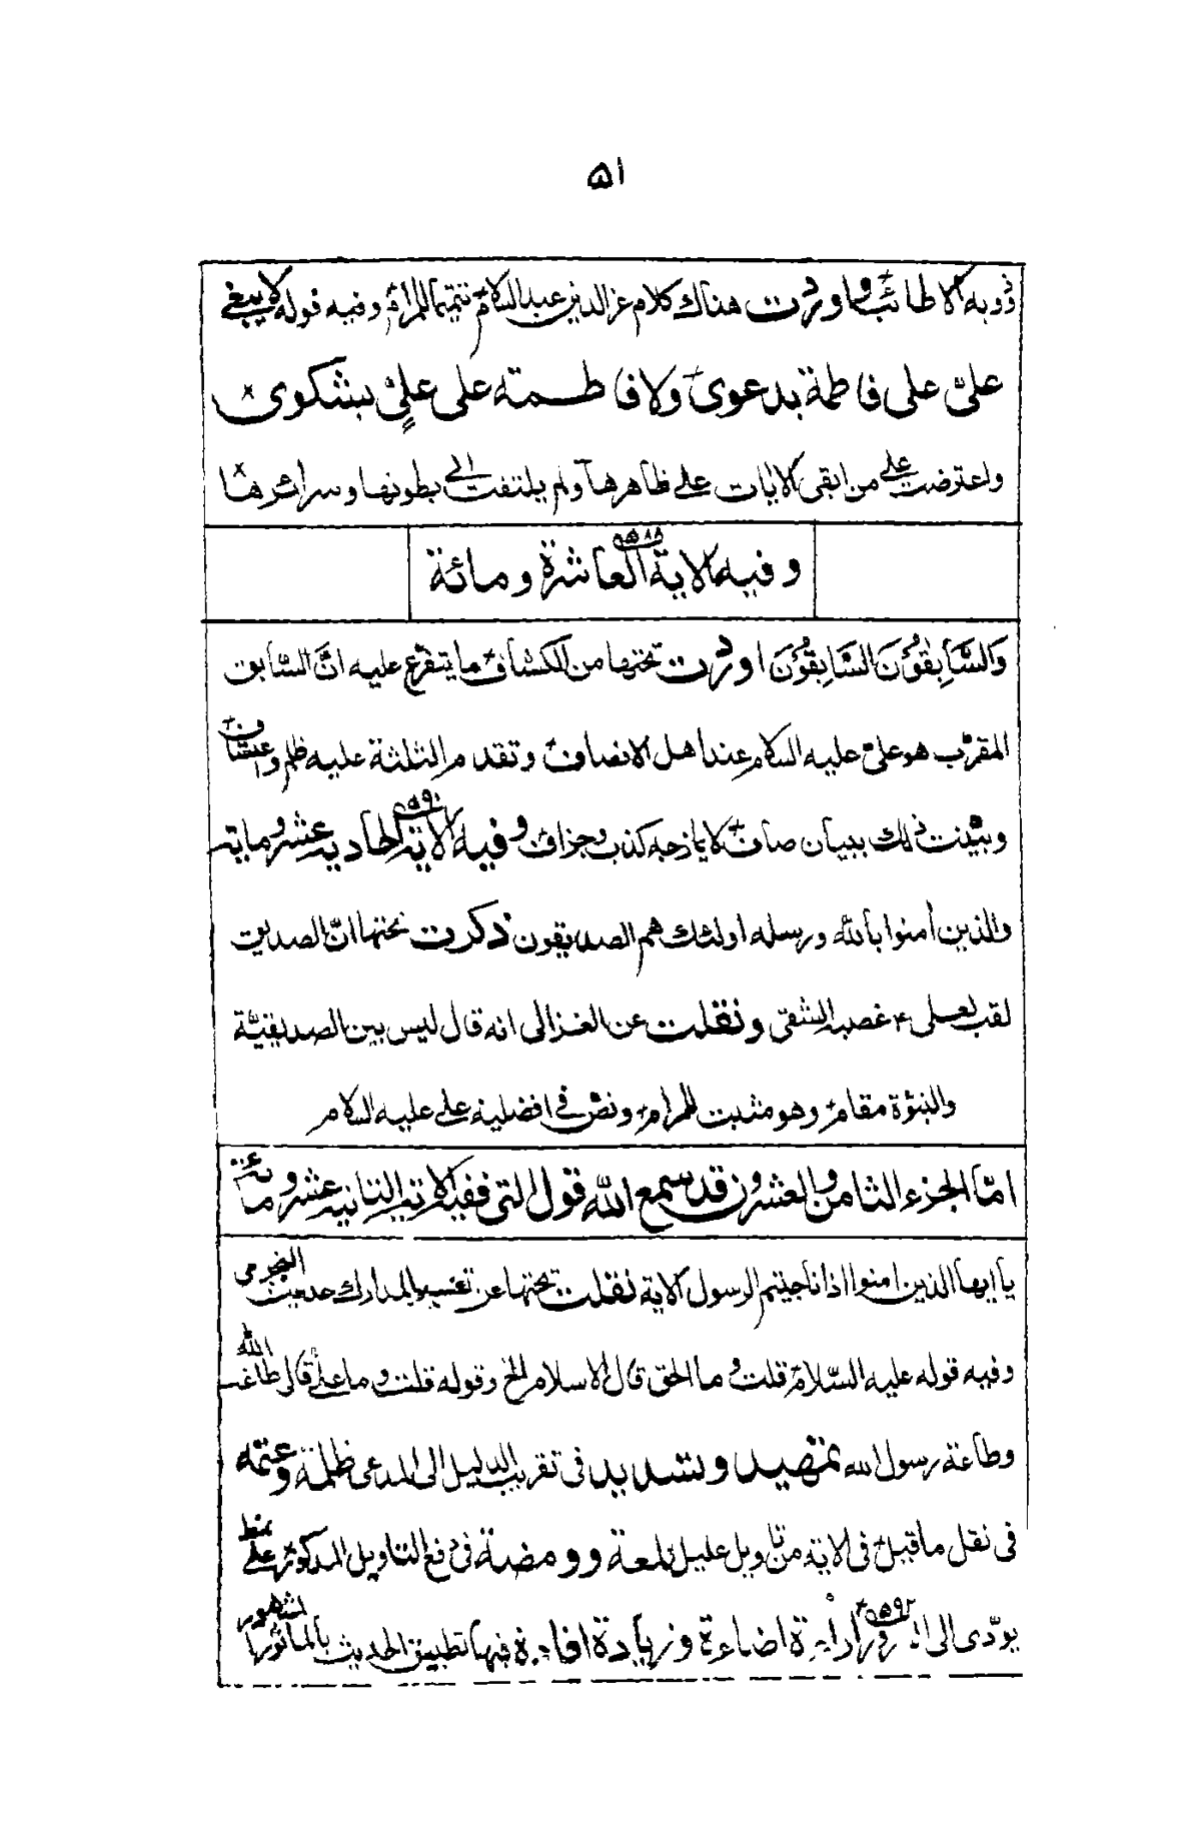 ۵۱
وبه الاطائب و اوردت هناك كلام عز الدين عبد السلام تتميما للمرام وفيه قوله لا يبغى
علىّ على فاطمة بدعوى ولا فاطمة على علىّ بشكوى
واعترضت على من ابقى الايات على ظاهرها ولم يلتفت الى بطونها وسرائرها
وفيه الاية العاشرة ومائة ۵۵۸۸
وَالسَّابِقُوْنَ السَّابِقُوْنَ اوردت تحتها من الكشاف ما يتفرع عليه انَّ السّابق
المقرّب هو علىّ عليه السلام عند اهل الانصاف وتقدم الثلثة عليه ظلم و اعتساف
وبيّنت ذلك ببيان صاف لا يمازجه كذب وجزاف وفيه الاية الحادية عشر وماية
والذين امنوا بالله ورسله اولئك هم الصديقون ذكرت تحتها انّ الصديق
لقب لعلى ۴ غصبه الشقى ونقلت عن الغزالى انه قال ليس بين الصديقيّة
والنبوّة مقام وهو مثبت للمرام ونص فى افضلية على عليه السلام
امّا الجزء الثامن والعشرون قد سمع الله قول التى ففيه الاية الثانية عشر ومائة
يا ايها الذين امنوا اذا ناجيتم الرسول الاية نقلت تحتها عن تفسير المدارك حديث النجوى
وفيه قوله عليه السّلام قلت و ما الحق قال الاسلام الخ وقوله قلت و ما علىّ قال طاعة الله
وطاعة رسول الله تمهيد وتشديد فى تقريب الدليل الى المدعى ظلمة وعتمة
فى نقل ما قيل فى الاية من تاويل عليل لمعة و ومضة فى دفع التاويل المذكور على نمط
يودّى الى النور ۵۵۹۲ اضاءة وزيادة افادة فيها تطبيق الحديث بالماثور المشهور